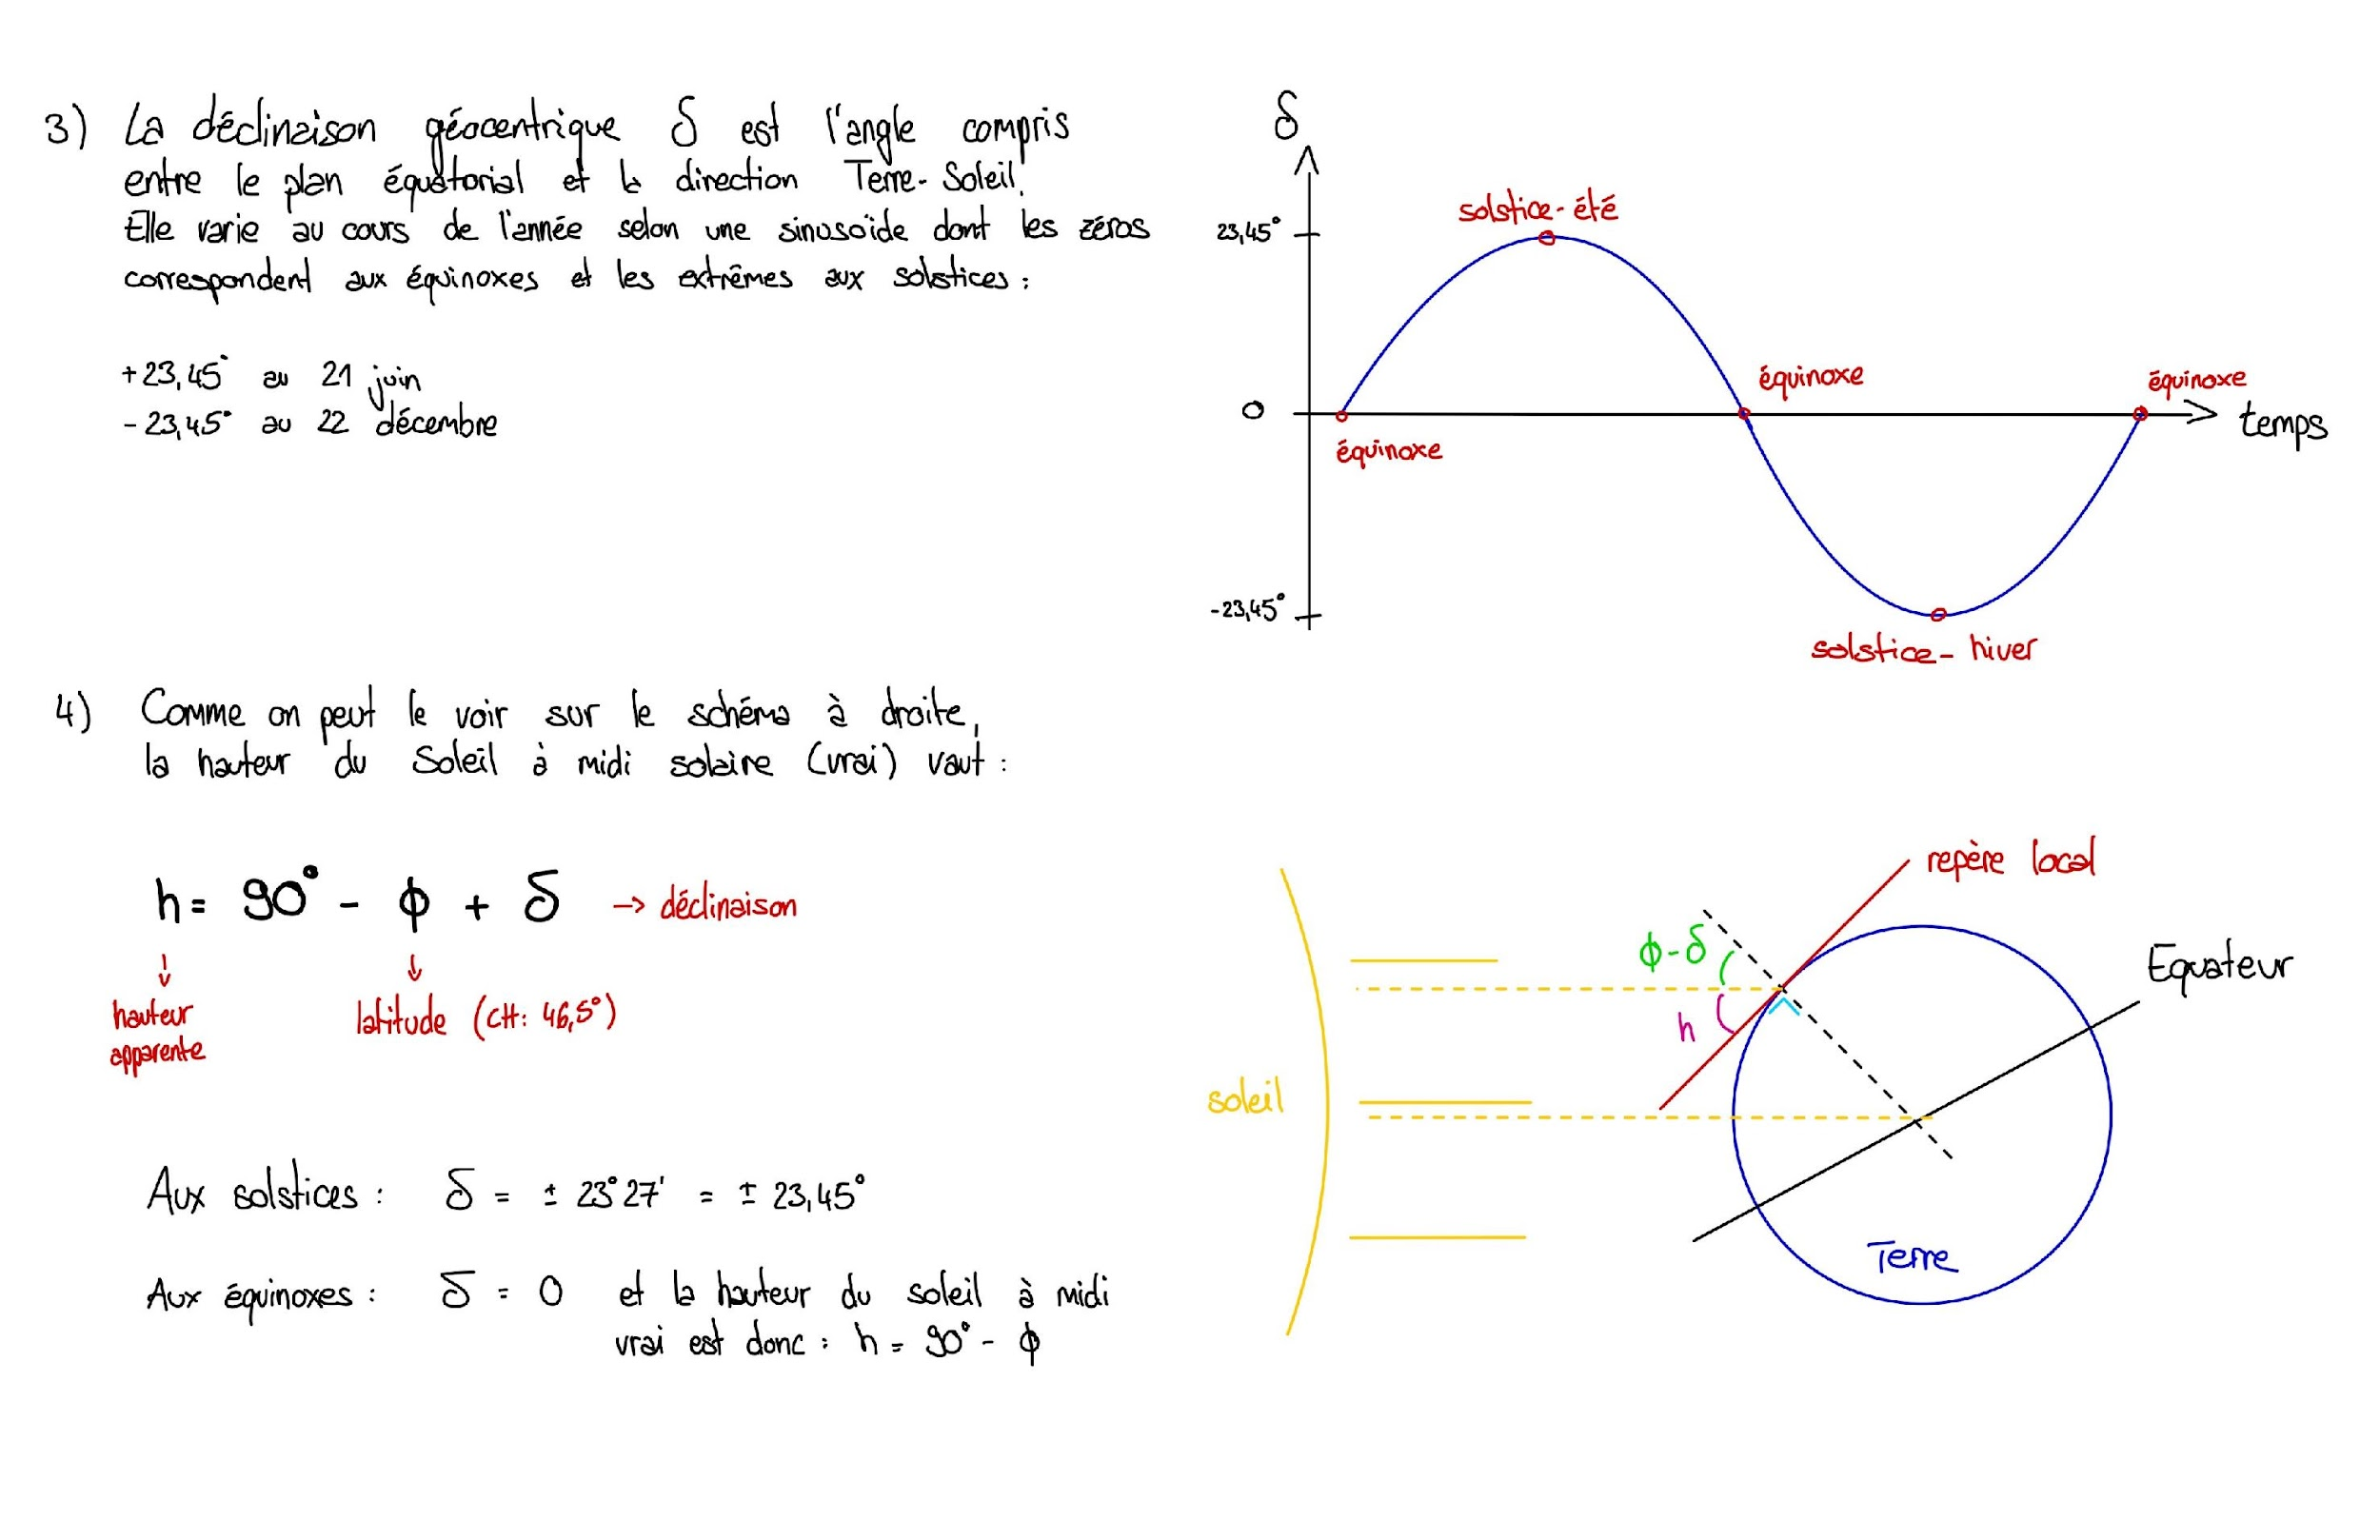 3) La déclinaison géocentrique δ est l'angle compris
entre le plan équatorial et la direction Terre-Soleil.
Elle varie au cours de l'année selon une sinusoïde dont les zéros
correspondent aux équinoxes et les extrêmes aux solstices :
+23,45° au 21 juin
-23,45° au 22 décembre
δ
23,45°
solstice-été
0
équinoxe
équinoxe
équinoxe
temps
-23,45°
solstice-hiver
4) Comme on peut le voir sur le schéma à droite,
la hauteur du Soleil à midi solaire (vrai) vaut :
h = 90° - ϕ + δ → déclinaison
↓ ↓
hauteur
apparente
latitude (CH: 46,5°)
Aux solstices : δ = ± 23°27' = ± 23,45°
Aux équinoxes : δ = 0 et la hauteur du soleil à midi
vrai est donc : h = 90° - ϕ
repère local
ϕ-δ
Equateur
h
soleil
Terre